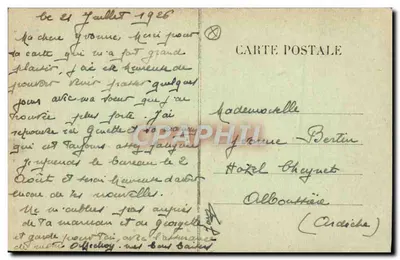 Le 21 Juillet 1926
Ma chère Yvonne Merci pour
ta carte qui m'a fait grand
plaisir, j'ai été heureuse de
pouvoir venir passer quelques
jours avec ma soeur que j'ai
trouvée plus forte. J'ai
retrouvé
qui est toujours assez
Je reprends le bureau le 2
Août et serai heureuse d'avoir
encore de tes nouvelles.
Ne m'oublies pas auprès
de ta maman et de Georgette
et garde pour toi, avec l'assurance
de mes bons baisers
CARTE POSTALE
CPAPHIL
Mademoiselle
Yvonne Bertin
Hôtel Cheynet
Alboussière
(Ardèche)